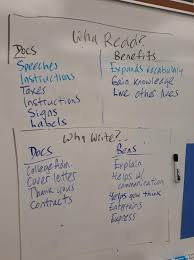 Why Read?
Docs
Speeches
Instructions
Taxes
Instructions
Signs
Labels
Benefits
Expands vocabulary
Gain knowledge
Live other lives
Why Write?
Docs
College Adm.
Cover letter
Thank yous
Contracts
Reas
Explain
Helps w/ communication
Helps you think
Entertains
Express